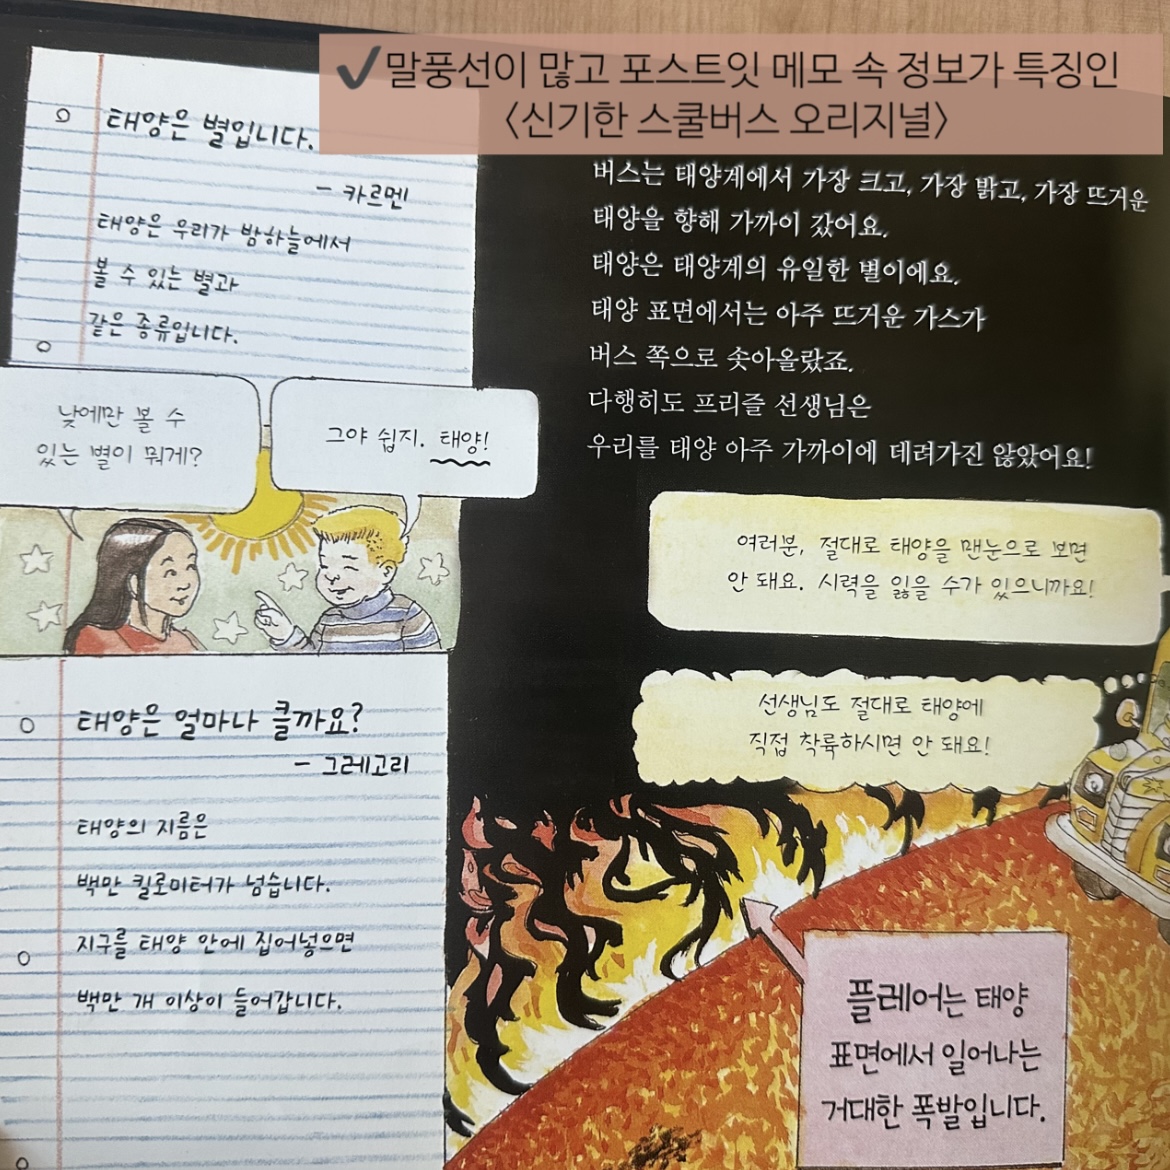 ✔말풍선이 많고 포스트잇 메모 속 정보가 특징인
<신기한 스쿨버스 오리지널>
태양은 별입니다.
- 카르멘
태양은 우리가 밤하늘에서
볼 수 있는 별과
같은 종류입니다.
낮에만 볼 수
있는 별이 뭐게?
그야 쉽지. 태양!
태양은 얼마나 클까요?
- 그레고리
태양의 지름은
백만 킬로미터가 넘습니다.
지구를 태양 안에 집어넣으면
백만 개 이상이 들어갑니다.
버스는 태양계에서 가장 크고, 가장 밝고, 가장 뜨거운
태양을 향해 가까이 갔어요.
태양은 태양계의 유일한 별이에요.
태양 표면에서는 아주 뜨거운 가스가
버스 쪽으로 솟아올랐죠.
다행히도 프리즐 선생님은
우리를 태양 아주 가까이에 데려가진 않았어요!
여러분, 절대로 태양을 맨눈으로 보면
안 돼요. 시력을 잃을 수가 있으니까요!
선생님도 절대로 태양에
직접 착륙하시면 안 돼요!
플레어는 태양
표면에서 일어나는
거대한 폭발입니다.